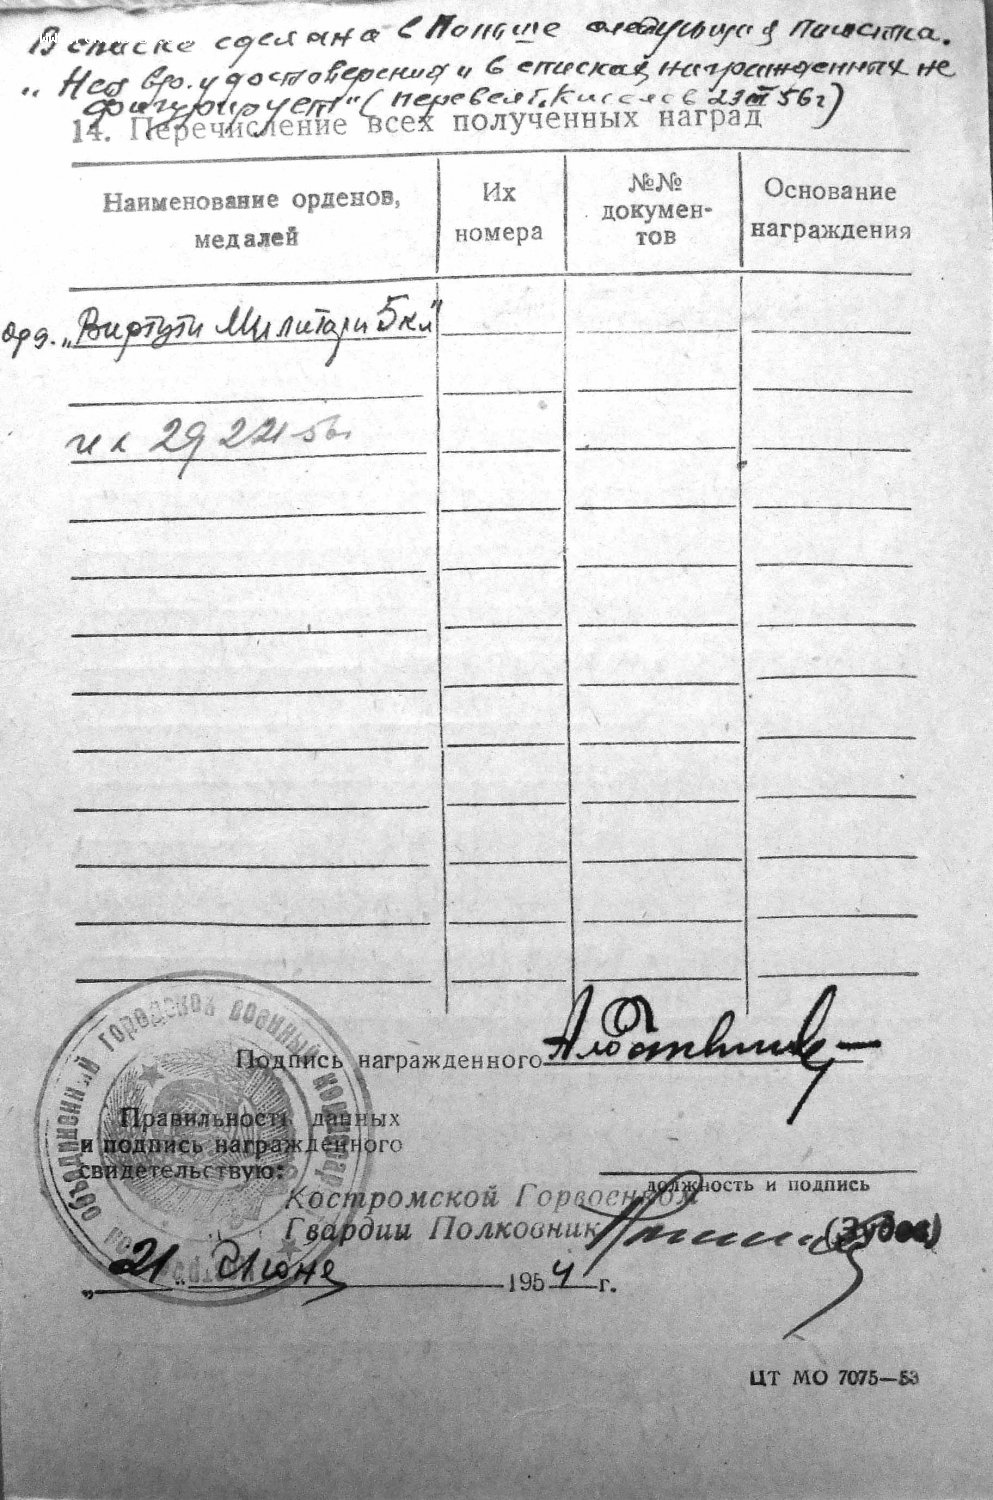 В списке сделана в Польше следующая пометка.
"Нет вр. удостоверения и в списках награжденных не
фигурирует" (перевел т. Кисляс 29 III 56 г)
14. Перечисление всех полученных наград
Наименование орденов, медалей
Их номера
№№ докумен-тов
Основание награждения
орд. „Виртути Милитари 5 кл"
Подпись награжденного
Правильность данных
и подпись награжденного
свидетельствую:
должность и подпись
Костромской Горвоенком
Гвардии Полковник (Зубов)
„21" Июня 1954 г.
ЦТ МО 7075—53